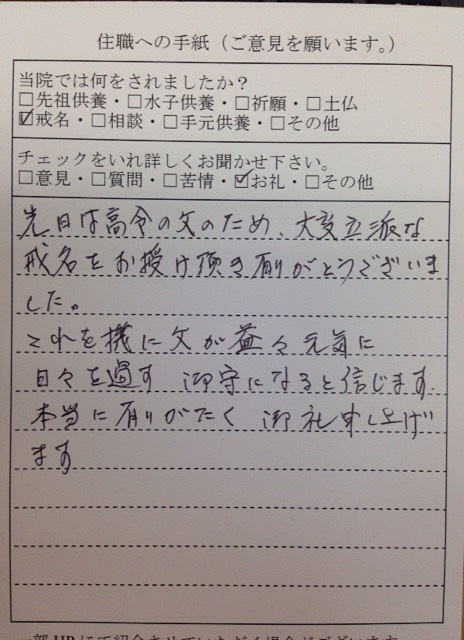 住職への手紙（ご意見を願います。）
当院では何をされましたか？
□先祖供養・□水子供養・□祈願・□土仏
☑戒名・□相談・□手元供養・□その他
チェックをいれ詳しくお聞かせ下さい。
□意見・□質問・□苦情・☑お礼・□その他
先日は高令の父のため、大変立派な
戒名をお授け頂き有りがとうございま
した。
これを機に父が益々元気に
日々を過す 御守になると信じます.
本当に有りがたく 御礼申し上げ
ます
一部HPにて紹介させていただく場合がございます